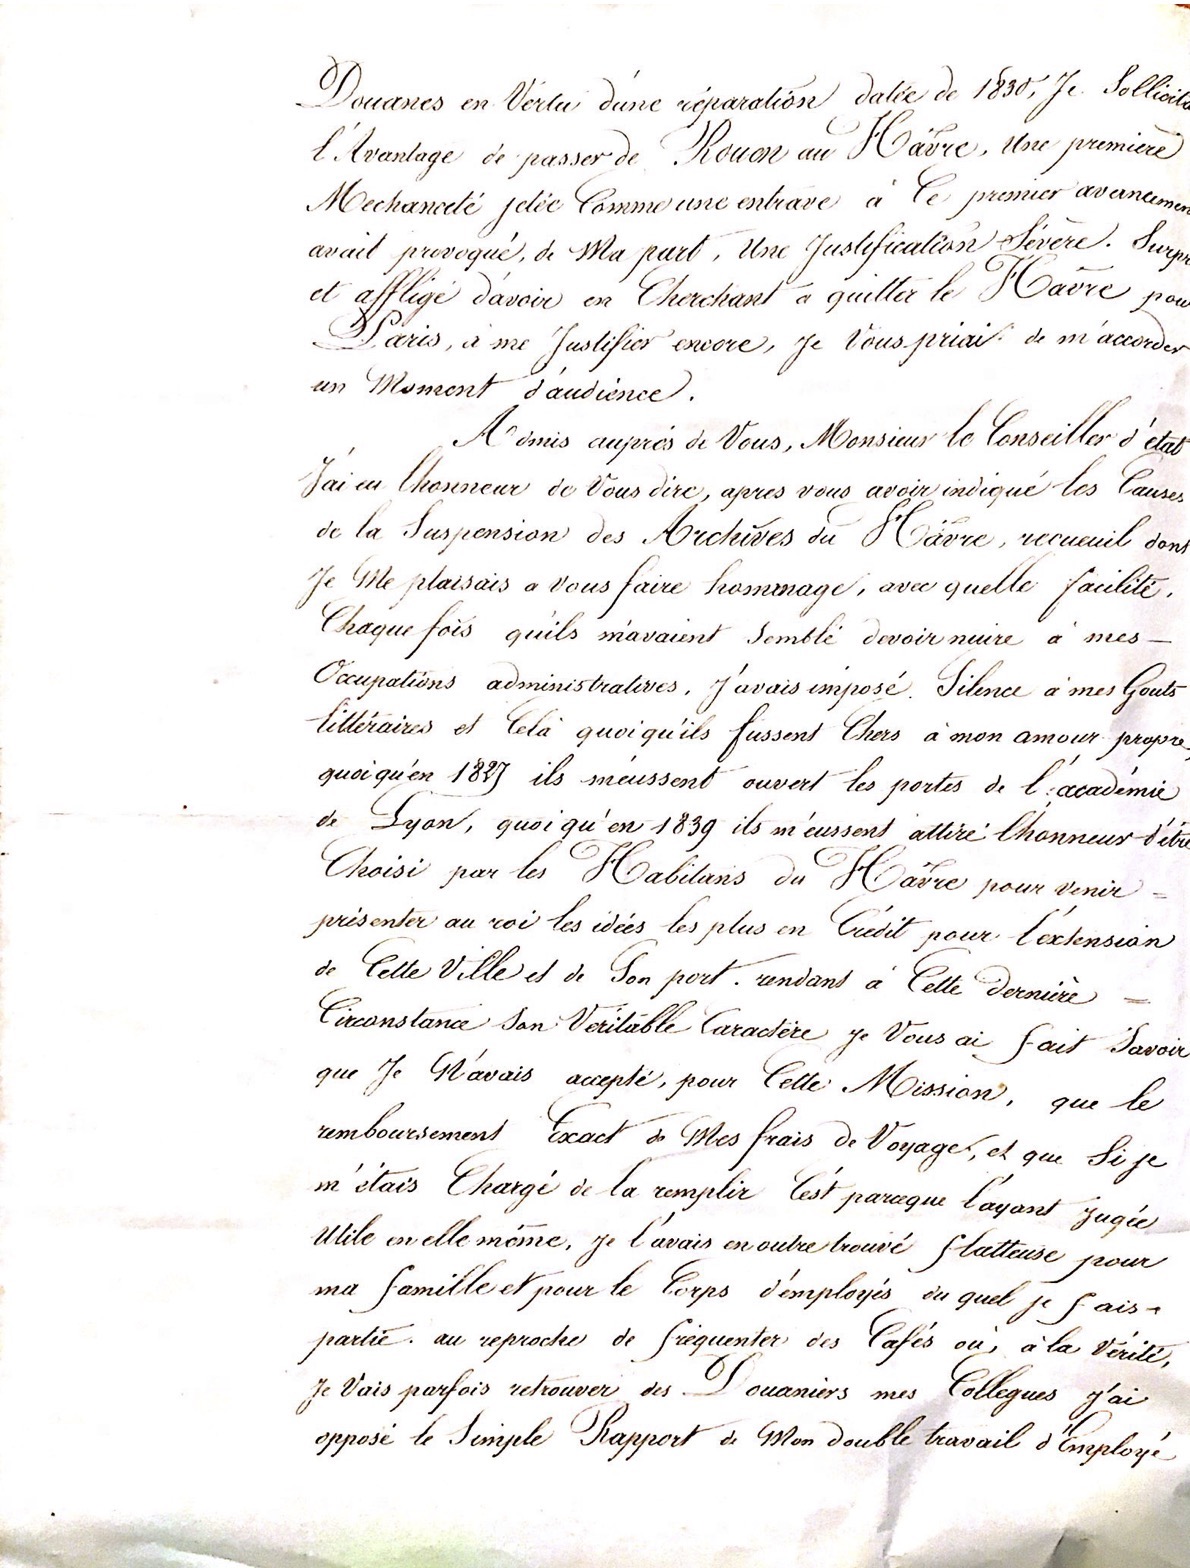 Douanes en Vértu d'une réparation datée de 1830, Je Sollicita
l'Avantage de passer de Rouen au Hâvre, Une première
Mechanceté jetée Comme une entrave à Ce premier avancemen
avait provoqué, de Ma part, Une Justification Sévère. Surpr
et affligé d'avoir en Cherchant a quitter le Hâvre pour
Paris, à me Justifier encore, Je Vous priai de m'accorder
un Moment d'audience.
Admis auprès de Vous, Monsieur le Conseiller d'état
J'ai eu l'honneur de Vous dire, apres vous avoir indiqué les Causes
de la Suspension des Archives du Hâvre, recueuil dont
Je Me plaisais a vous faire hommage, avec quelle facilité,
Chaque fois qu'ils m'avaient Semblé devoir nuire à mes —
Occupations administratives, J'avais imposé Silence à mes Gouts
littéraires et Celà quoiqu'ils fussent Chers à mon amour propre,
quoiqu'en 1827 ils m'eussent ouvert les portes de l'académie
de Lyon, quoiqu'en 1839 ils m'eussent attiré l'honneur d'être
Choisi par les Habitans du Hâvre pour venir =
présenter au roi les idées les plus en Crédit pour l'extension
de Cette Ville et de Son port. rendant à Cette dernière =
Circonstance Son Véritable Caractère Je Vous ai fait Savoir
que Je N'avais accepté, pour Cette Mission, que le
remboursement Exact de Mes frais de Voyage, et que Si je
m'étais Chargé de la remplir C'est parceque l'ayant Jugée
Utile en elle même, Je l'avais en outre trouvé flatteuse pour
ma famille et pour le Corps d'employés du quel je fais -
partie. au reproche de fréquenter des Cafés où, à la Vérité,
Je Vais parfois retrouver des Douaniers mes Collegues J'ai
opposé le Simple Rapport de Mon double travail d'Employé